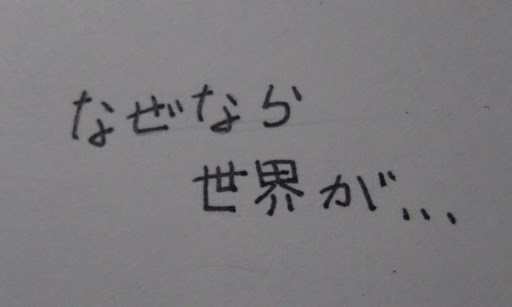 なぜなら
世界が...